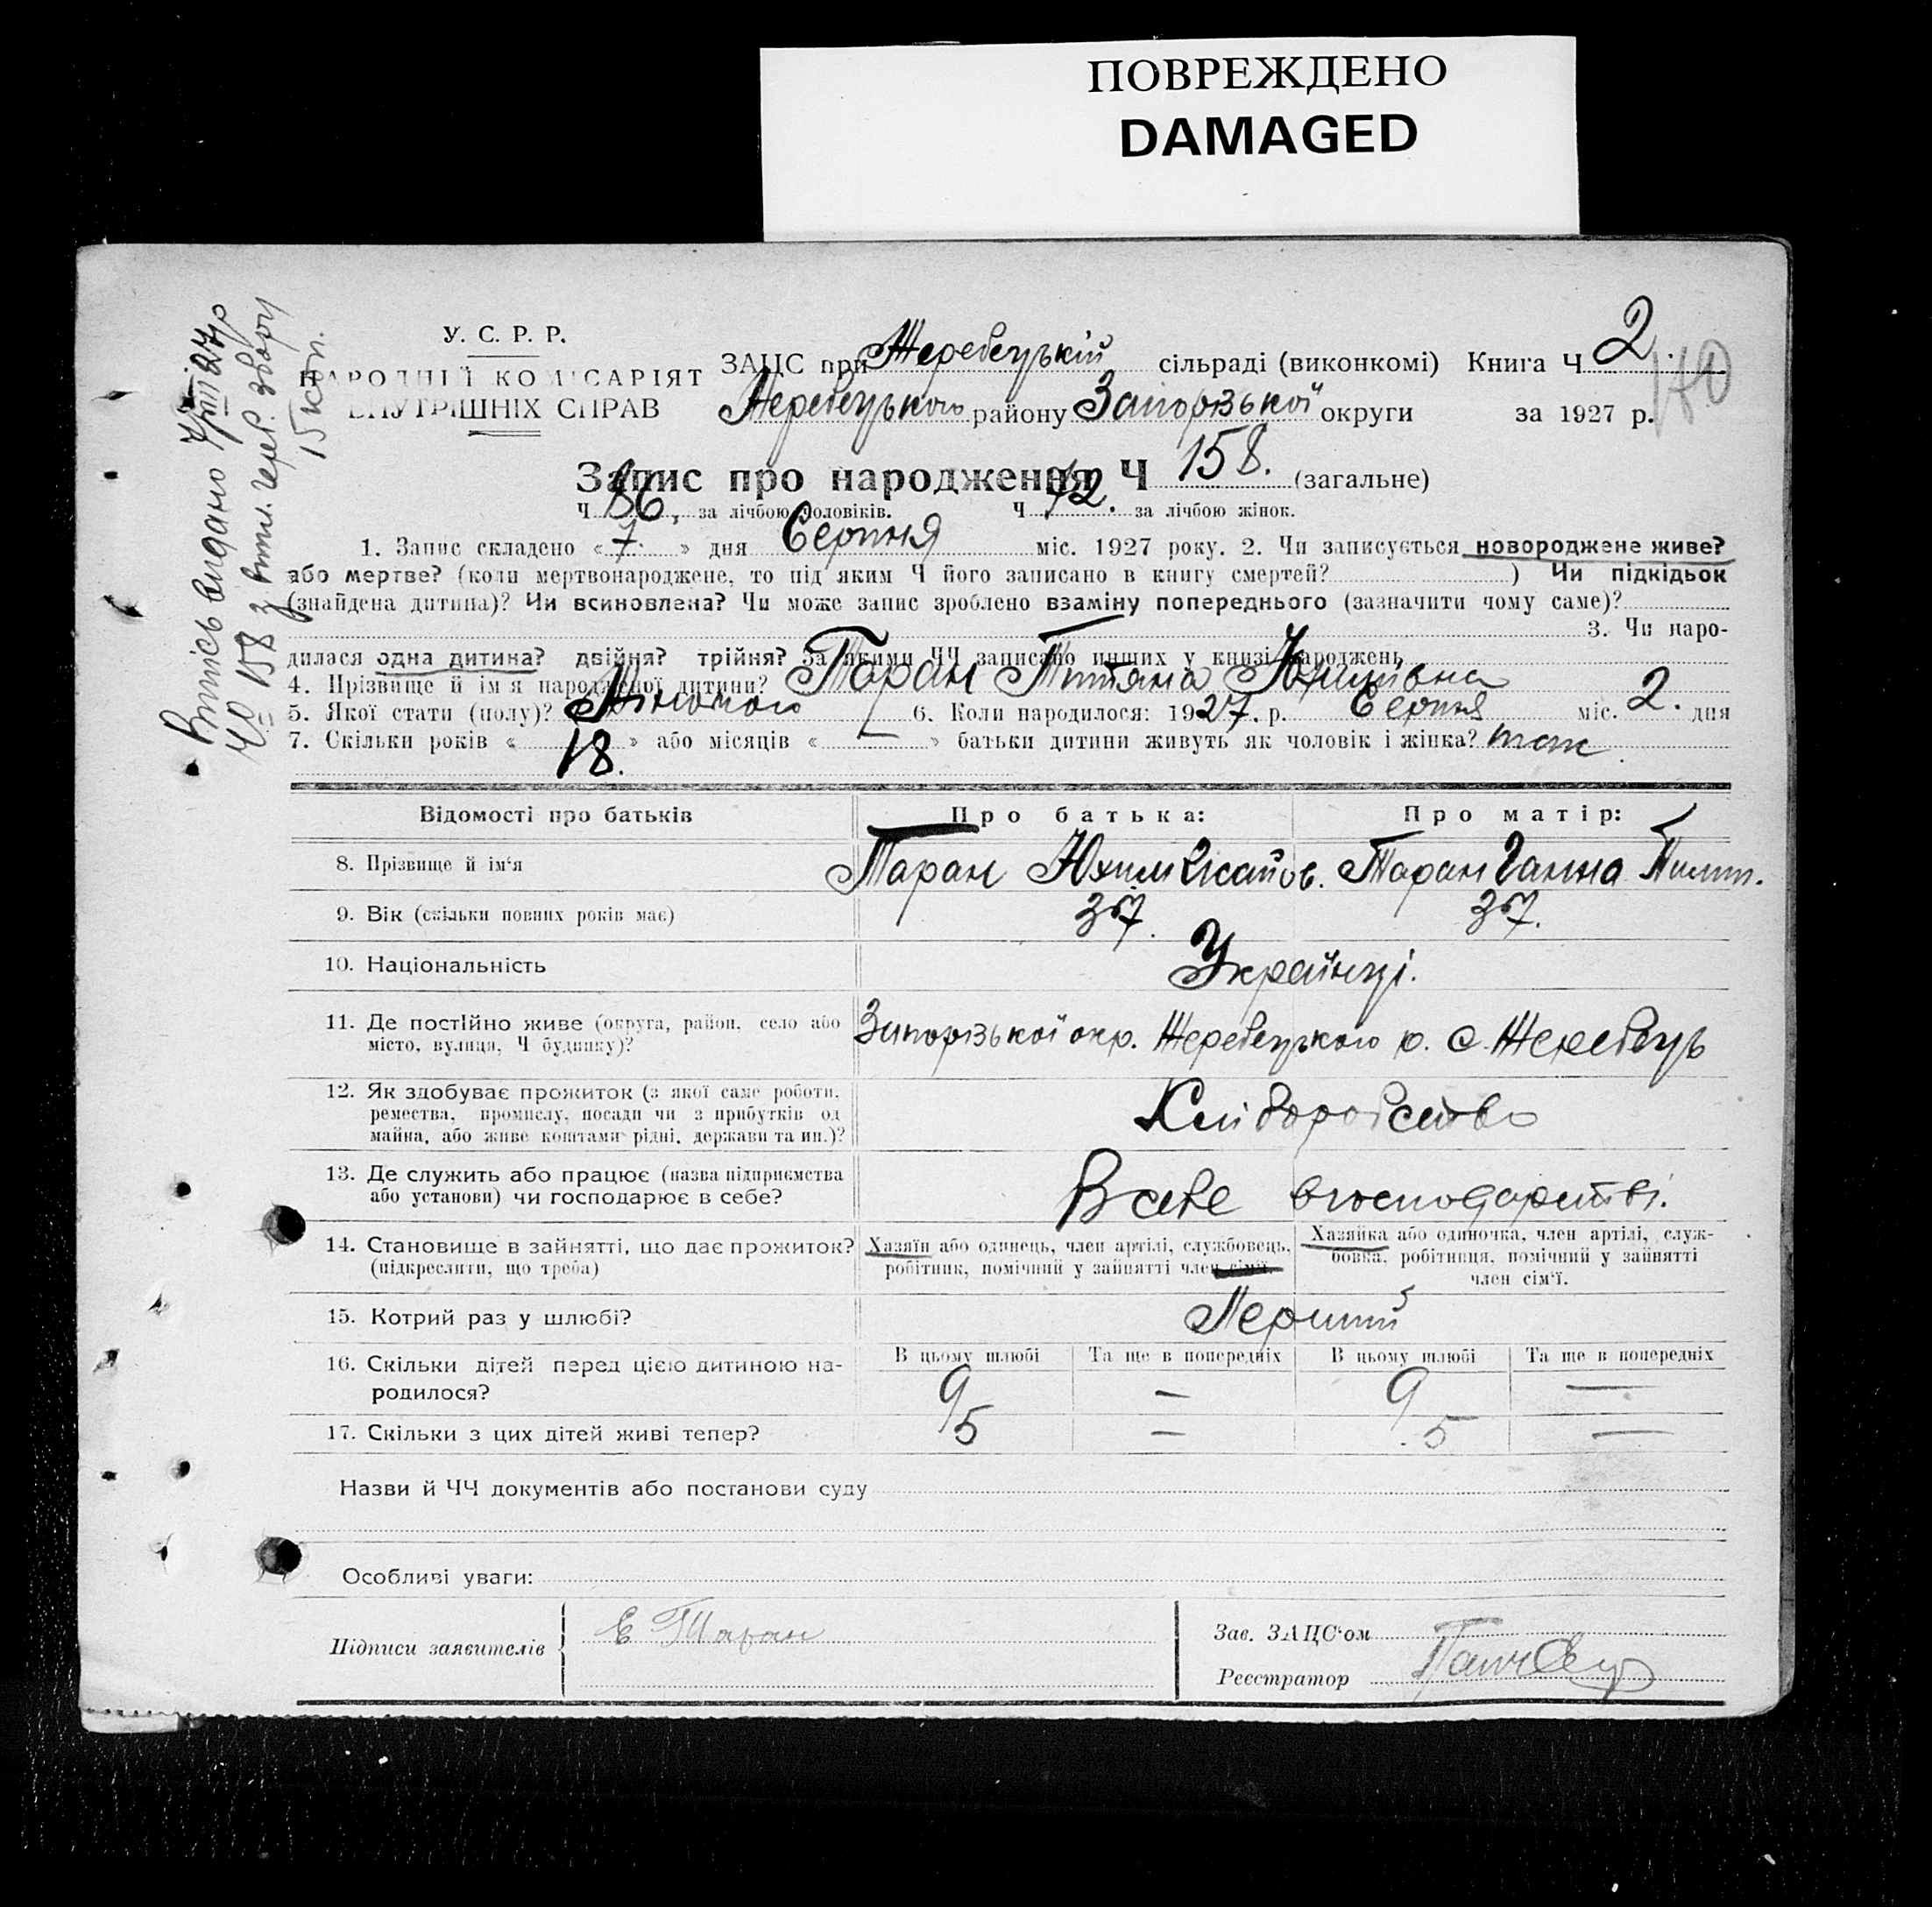 ПОВРЕЖДЕНО
DAMAGED
У. С. Р. Р.
НАРОДНІЙ КОМІСАРІЯТ
ВНУТРІШНІХ СПРАВ
ЗАЦС при Жеребецькій сільраді (виконкомі) Книга Ч 2.
Жеребецького району Запорізької округи за 1927 р.
Запис про народження Ч 158. (загальне)
Ч 86, за лічбою чоловіків. Ч 72. за лічбою жінок.
1. Запис складено « 7 » дня Серпня міс. 1927 року. 2. Чи записується новороджене живе?
або мертве? (коли мертвонароджене, то під яким Ч його записано в книгу смертей? ) Чи підкідьок
(знайдена дитина)? Чи всиновлена? Чи може запис зроблено взаміну попереднього (зазначити чому саме)?
3. Чи наро-
дилася одна дитина? двійня? трійня? За якими ЧЧ записано инших у книзі народжень
4. Прізвище й ім'я народженої дитини? Таран Титяна Юхимівна
5. Якої стати (полу)? Жіночого 6. Коли народилося: 1927. р. Серпня міс. 2. дня
7. Скільки років « 18. » або місяців « — » батьки дитини живуть як чоловік і жінка? так
Відомості про батьків Про батька: Про матір:
8. Прізвище й ім'я Таран Юхим Таран Ганна
9. Вік (скільки повних років має) 37. 37.
10. Національність Українці.
11. Де постійно живе (округа, район, село або Запорізької окр. Жеребецького р. с. Жеребець
місто, вулиця, Ч будинку)?
12. Як здобуває прожиток (з якої саме роботи,
ремества, промислу, посади чи з прибутків од Хліборобство
майна, або живе коштами рідні, держави та ин.)?
13. Де служить або працює (назва підприємства В себе в господарстві.
або установи) чи господарює в себе?
14. Становище в зайнятті, що дає прожиток? Хазяїн або одинець, член артілі, службовець, Хазяйка або одиночка, член артілі, служ-
(підкреслити, що треба) робітник, помічний у зайнятті член сім'ї. бовка, робітниця, помічний у зайнятті
член сім'ї.
15. Котрий раз у шлюбі? Перший
16. Скільки дітей перед цією дитиною на- В цьому шлюбі Та ще в попередніх В цьому шлюбі Та ще в попередніх
родилося? 9 — 9 —
17. Скільки з цих дітей живі тепер? 5 — 5 —
Назви й ЧЧ документів або постанови суду
Особливі уваги:
Підписи заявителів Е Таран Зав. ЗАЦС'ом
Реєстратор
Витпісь видано 7/VIII 27 р
Ч⁰ 158 з
15 коп.